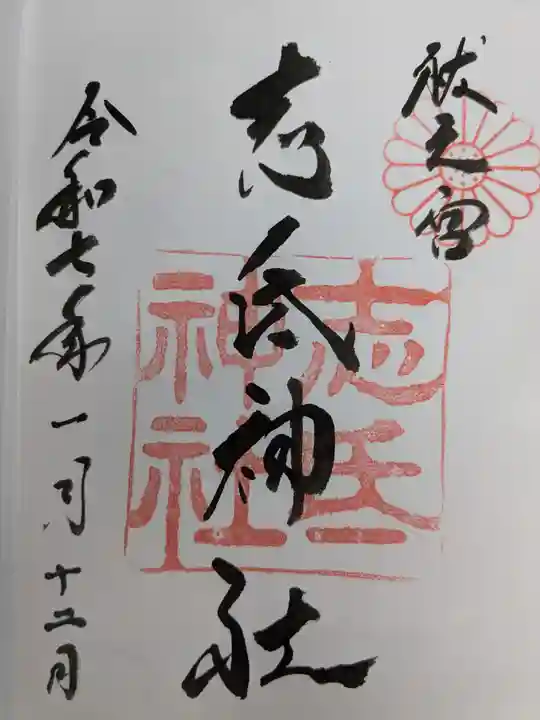 祓之宮
志氐神社
令和七年一月十二日
志氐
神社